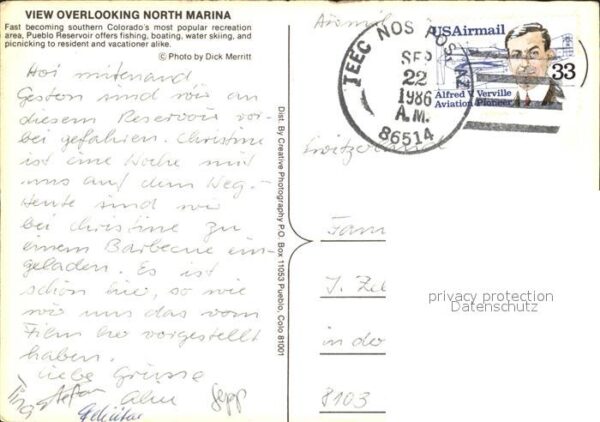 VIEW OVERLOOKING NORTH MARINA
Fast becoming southern Colorado's most popular recreation
area, Pueblo Reservoir offers fishing, boating, water skiing, and
picnicking to resident and vacationer alike.
© Photo by Dick Merritt
Hoi mitenand
Gestern sind wir an
diesem Reservoir vor-
bei gefahren. Christine
ist eine Woche mit
uns auf dem Weg.
Heute sind wir
bei Christine zu
einem Barbecue ein-
geladen. Es ist
schön hier, so wie
wir uns das vom
Film her vorgestellt
haben.
Liebe Grüsse
Stefan Alin Sepp
Felicitas
Dist. By Creative Photography P.O. Box 11053 Pueblo, Colo 81001
Airmail
TEEC NOS POS, AZ
SEP
22
1986
A.M.
86514
USAirmail
33
Alfred V. Verville
Aviation Pioneer
Switzerland
Fam
J. Zel
in der
8103
privacy protection
Datenschutz